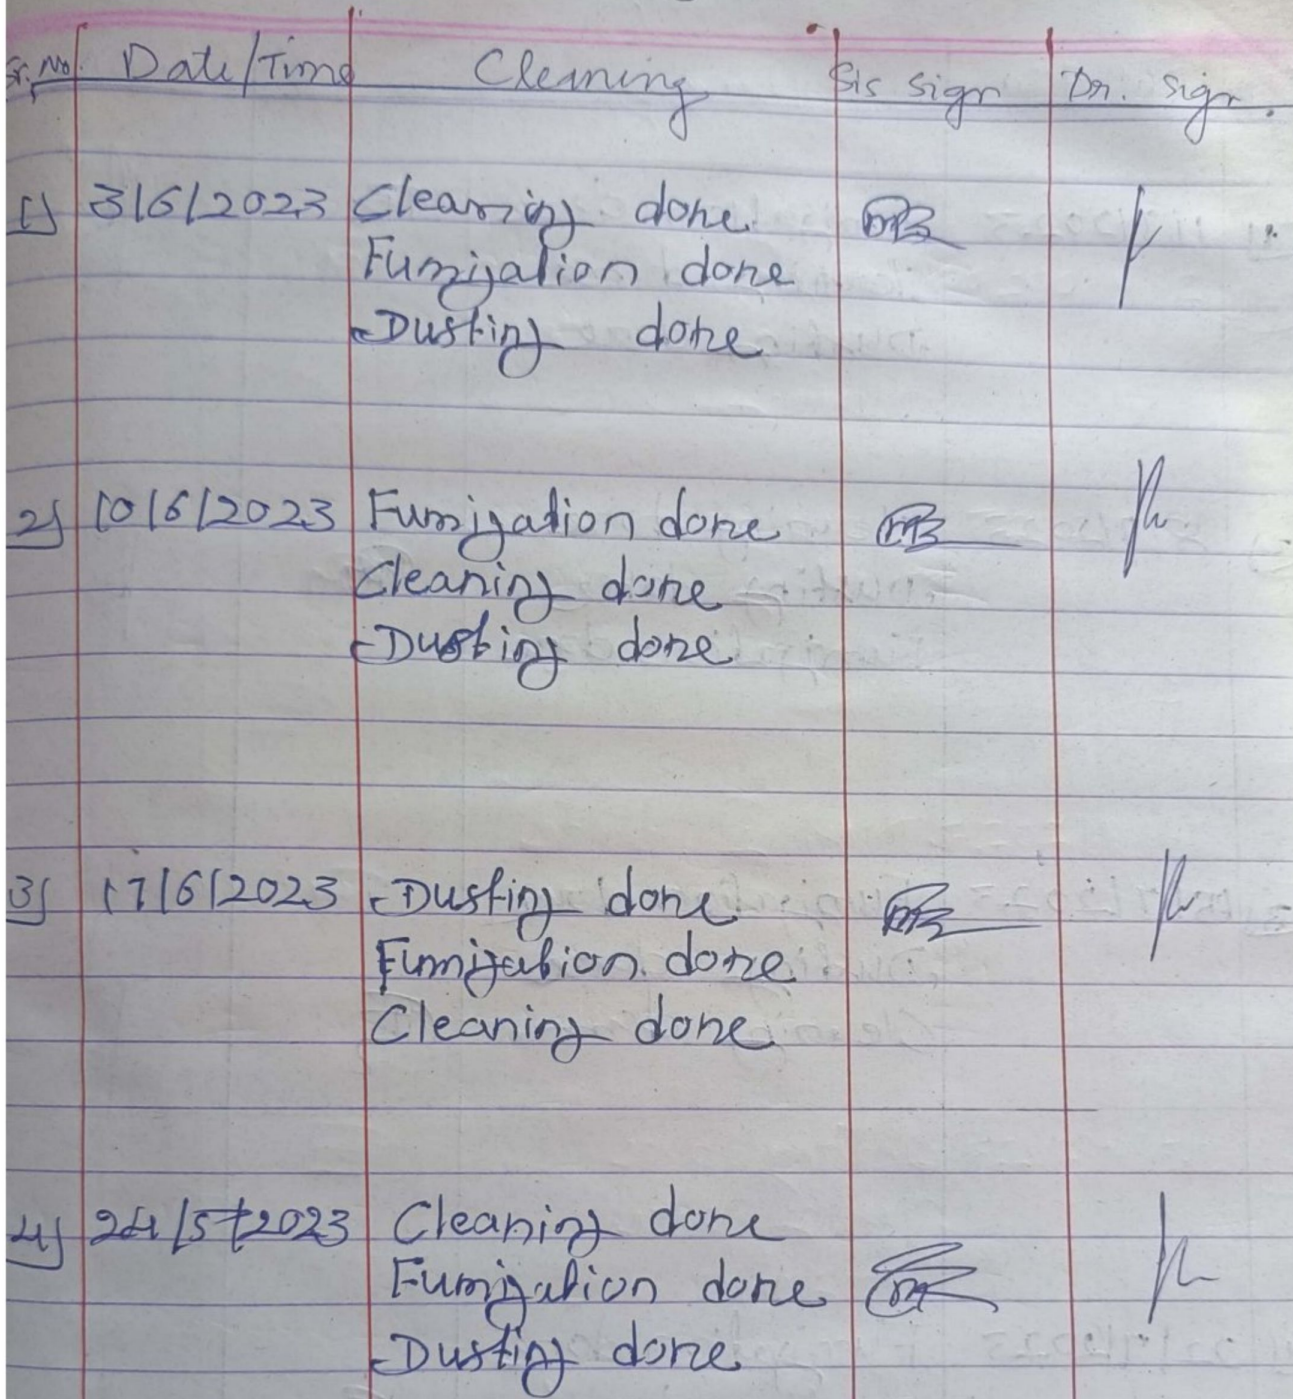 Sr. No. Date/Time Cleaning Sis Sign Dr. Sign.
1) 3/6/2023 Cleaning done
Fumigation done
Dusting done
2) 10/6/2023 Fumigation done
Cleaning done
Dusting done
3) 17/6/2023 Dusting done
Fumigation done
Cleaning done
4) 24/5/2023 Cleaning done
Fumigation done
Dusting done